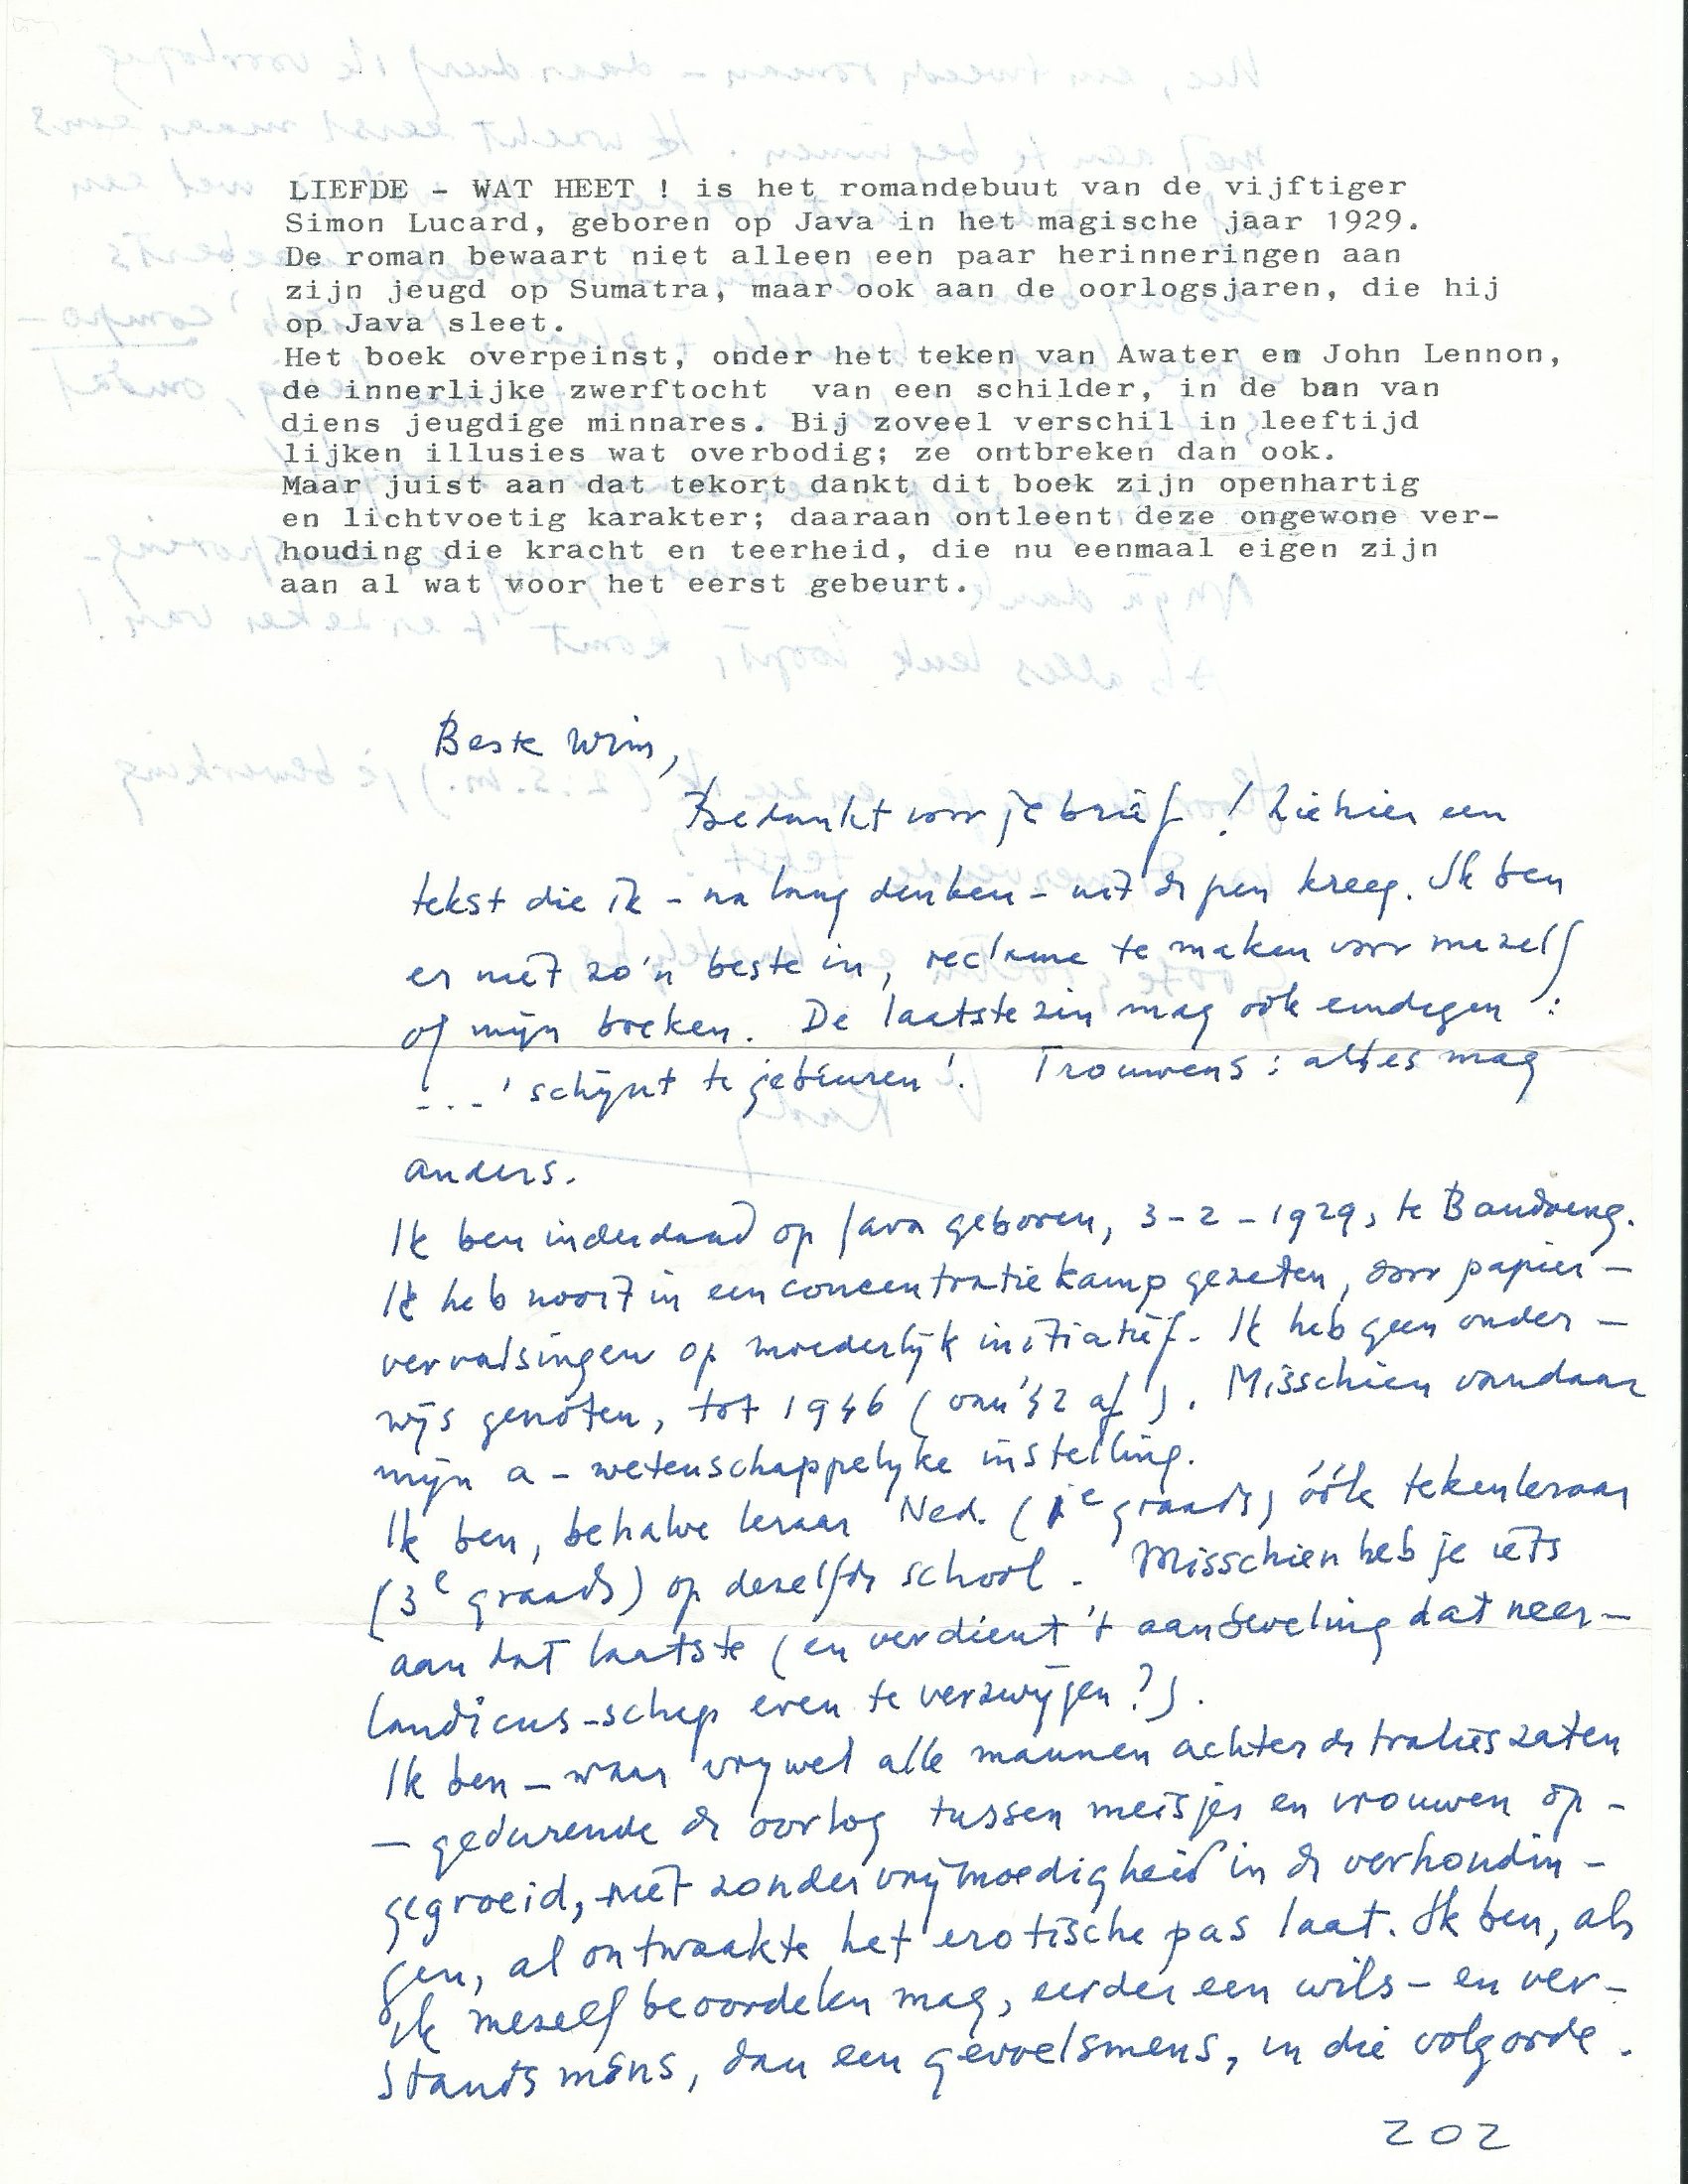 LIEFDE - WAT HEET ! is het romandebuut van de vijftiger
Simon Lucard, geboren op Java in het magische jaar 1929.
De roman bewaart niet alleen een paar herinneringen aan
zijn jeugd op Sumatra, maar ook aan de oorlogsjaren, die hij
op Java sleet.
Het boek overpeinst, onder het teken van Awater en John Lennon,
de innerlijke zwerftocht van een schilder, in de ban van
diens jeugdige minnares. Bij zoveel verschil in leeftijd
lijken illusies wat overbodig; ze ontbreken dan ook.
Maar juist aan dat tekort dankt dit boek zijn openhartig
en lichtvoetig karakter; daaraan ontleent deze ongewone ver-
houding die kracht en teerheid, die nu eenmaal eigen zijn
aan al wat voor het eerst gebeurt.
Beste Wim,
Bedankt voor je brief ! Ziehier een
tekst die ik - na lang denken - uit de pen kreeg. Ik ben
er niet zo'n beste in, reclame te maken voor mezelf
of mijn boeken. De laatste zin mag óók eindigen :
... 'schijnt te gebeuren'. Trouwens : alles mag
anders.
Ik ben inderdaad op Java geboren, 3-2-1929, te Bandoeng.
Ik heb nooit in een concentratiekamp gezeten, door papier-
vervalsingen op moederlijk initiatief. Ik heb geen onder-
wijs genoten, tot 1946 (van '42 af). Misschien vandaar
mijn a-wetenschappelijke instelling.
Ik ben, behalve leraar Ned. (1e graads) óók tekenleraar
(3e graads) op dezelfde school. Misschien heb je iets
aan dat laatste (en verdient 't aanbeveling dat neer-
landicus-schap even te verzwijgen?).
Ik ben - waar vrijwel alle mannen achter de tralies zaten
- gedurende de oorlog tussen meisjes en vrouwen op-
gegroeid, niet zonder vrijmoedigheid in de verhoudin-
gen, al ontwaakte het erotische pas laat. Ik ben, als
ik mezelf beoordelen mag, eerder een wils- en ver-
standsmens, dan een gevoelsmens, in die volgorde.
202